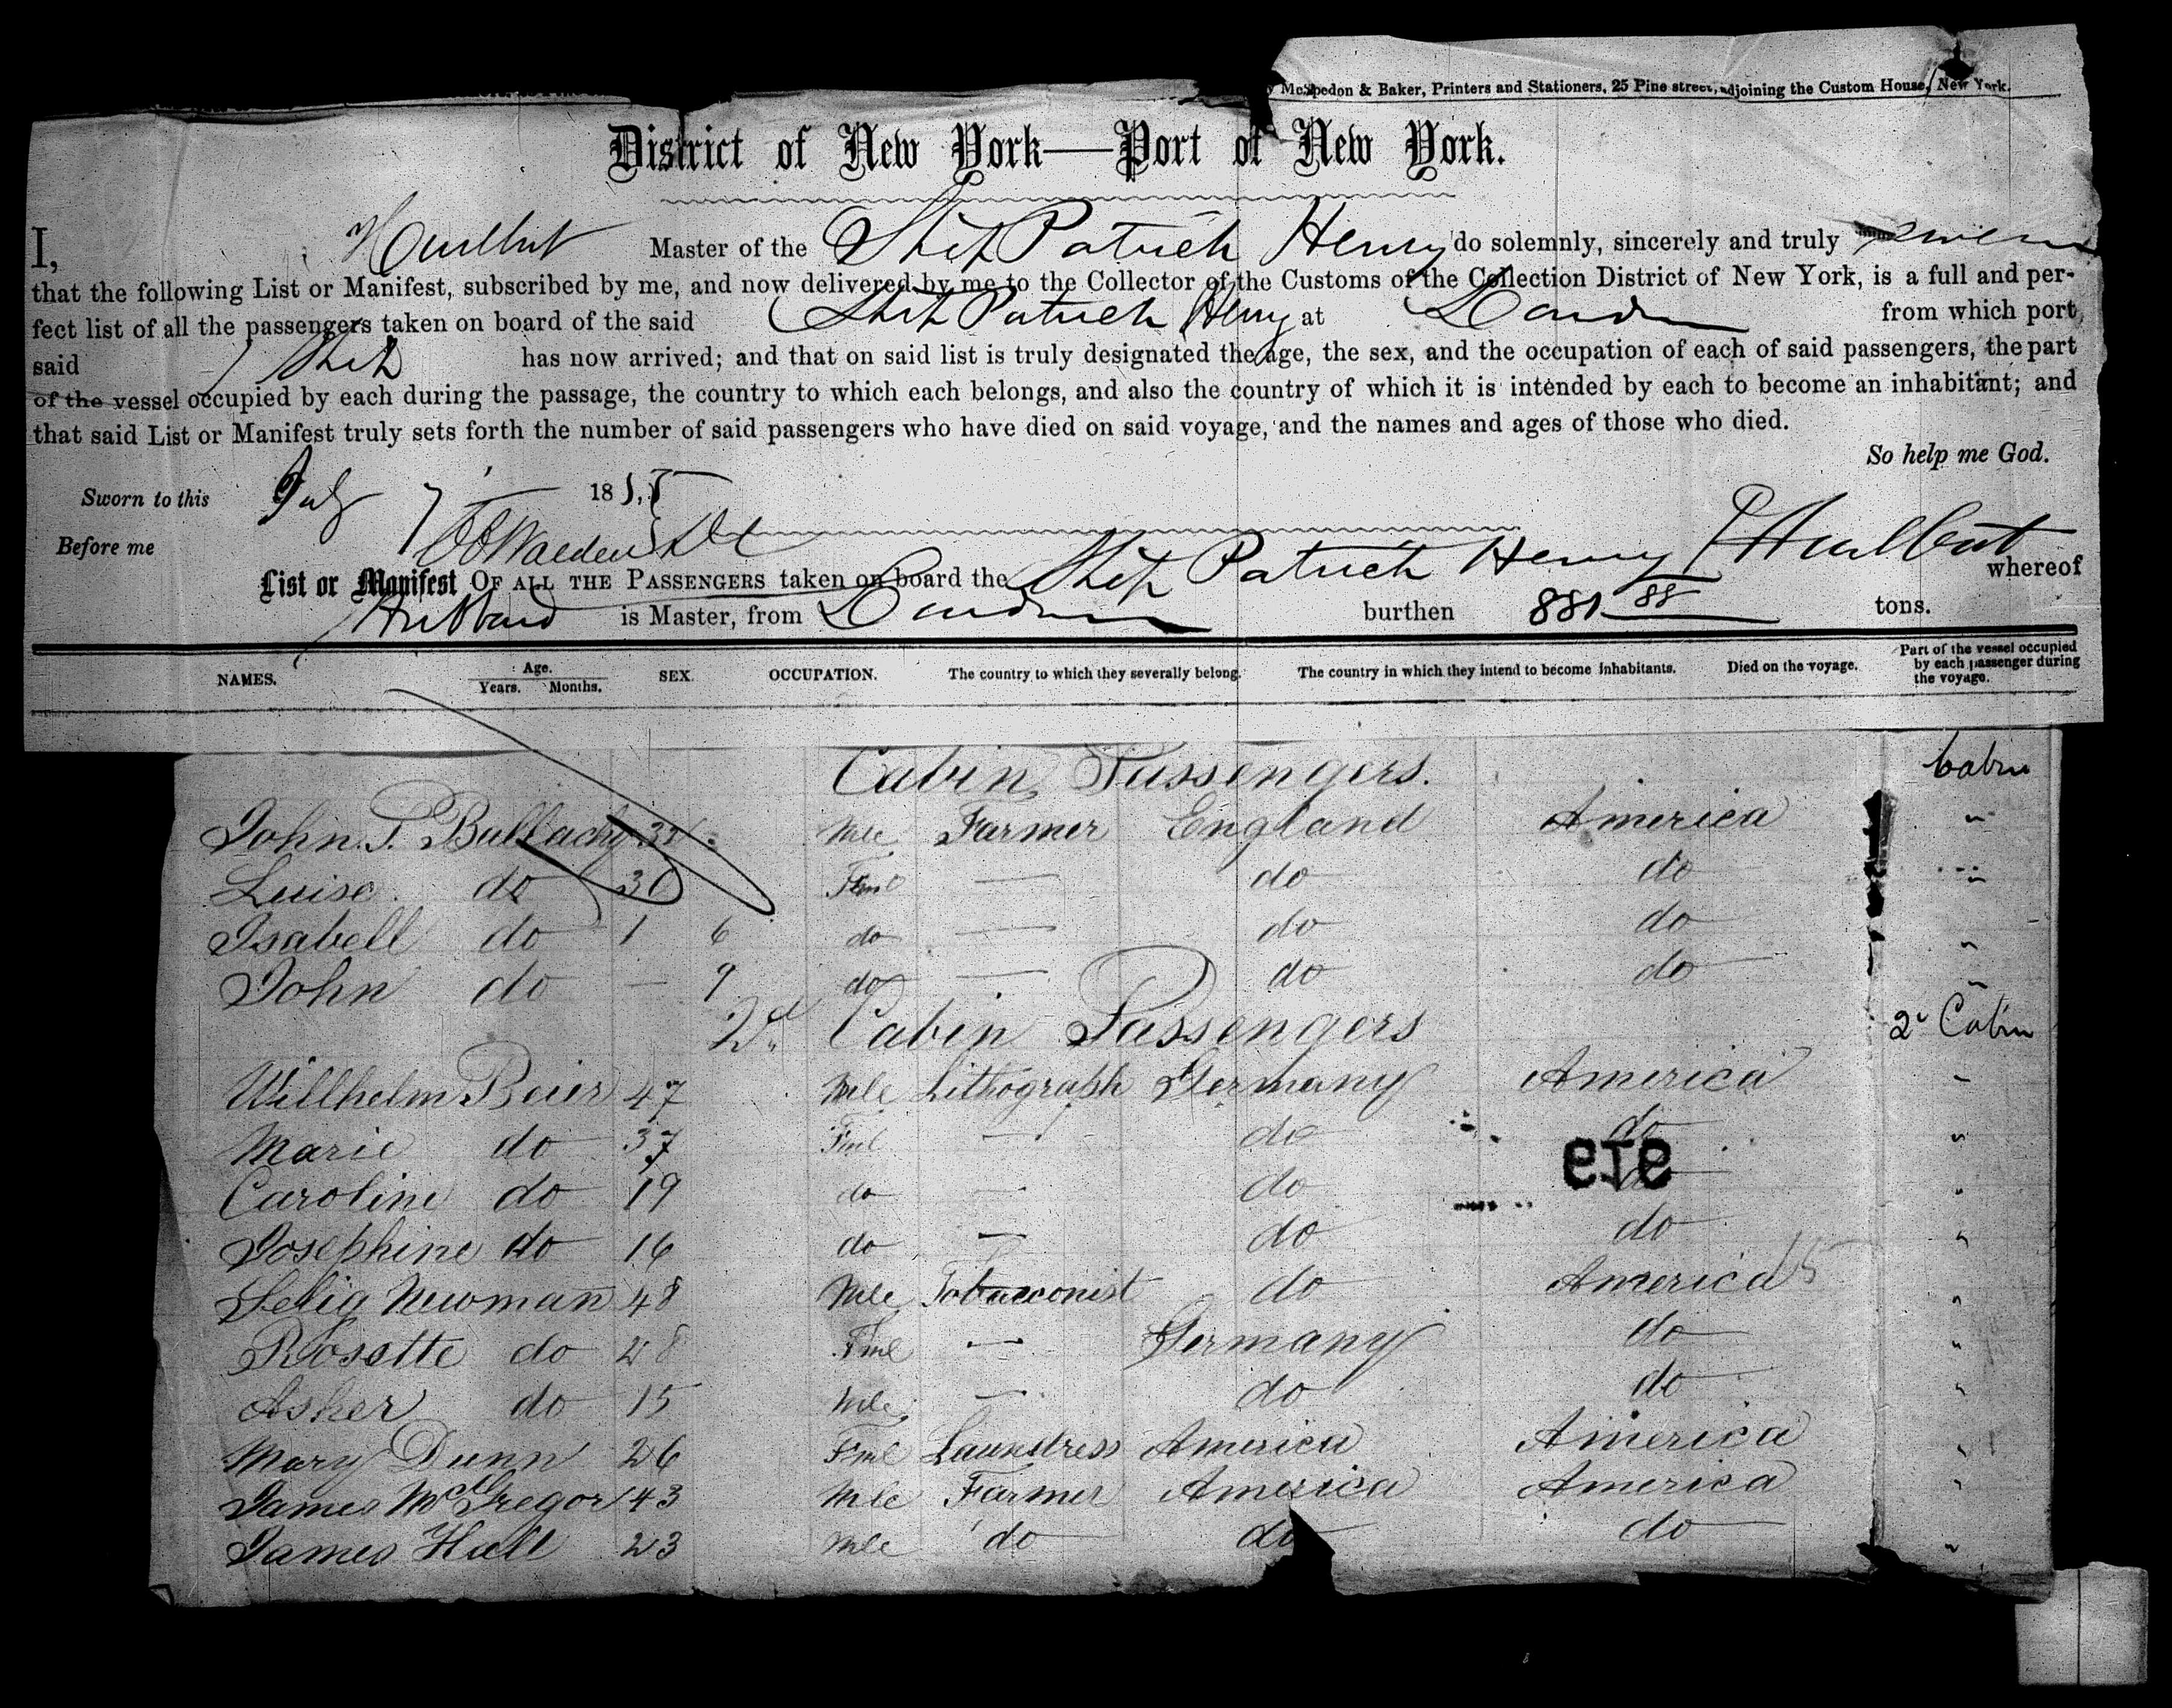 McSpedon & Baker, Printers and Stationers, 25 Pine street, adjoining the Custom House, New York.
District of New York—Port of New York.
I, Hurlbut Master of the Ship Patrick Henry do solemnly, sincerely and truly swear
that the following List or Manifest, subscribed by me, and now delivered by me to the Collector of the Customs of the Collection District of New York, is a full and per-
fect list of all the passengers taken on board of the said Ship Patrick Henry at London from which port,
said Ship has now arrived; and that on said list is truly designated the age, the sex, and the occupation of each of said passengers, the part
of the vessel occupied by each during the passage, the country to which each belongs, and also the country of which it is intended by each to become an inhabitant; and
that said List or Manifest truly sets forth the number of said passengers who have died on said voyage, and the names and ages of those who died.
So help me God.
Sworn to this July 7 1855
Before me Hurlbut
List or Manifest OF ALL THE PASSENGERS taken on board the Ship Patrick Henry whereof
Hubbard is Master, from London burthen 881 88 tons.
NAMES. Age. Years. Months. SEX. OCCUPATION. The country to which they severally belong. The country in which they intend to become inhabitants. Died on the voyage. Part of the vessel occupied by each passenger during the voyage.
Cabin Passengers. Cabin
John. S. Mle Farmer England America "
Luise do 30 Fml — do do "
Isabell do 1 6 do — do do "
John do — 9 do — do do "
2d. Cabin Passengers 2d Cabin
Willhelm Beier 47 Mle Lithograph Germany America "
Marie do 37 Fml — do do "
Caroline do 19 do — do do "
919
Josephine do 16 do — do do "
Selig Newman 48 Mle Tobacconist do America "
Rosette do 48 Fml — Germany do "
Asher do 15 Mle — do do "
Mary Dunn 26 Fml Laundress America America "
James McGregor 43 Mle Farmer America America "
James Hall 23 Mle do do do "